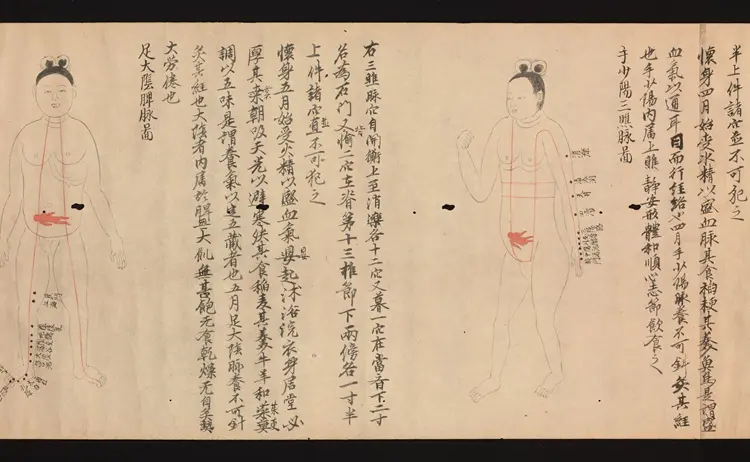 半上件諸穴並不可犯之
懐身四月始受水精以盛血脉其食稻粳其羹魚鴈是謂盛
血氣以通耳目而行経絡也四月手少陽脉養不可針灸其経
也手少陽内属上膲静安形體和順心志節飲食之
手少陽三膲脉圖
右三膲脉穴自開衝上至消濼各十二穴又募一穴在當齊下二寸
名為石門又輸二穴在脊第十三椎節下兩傍各一寸半
上件諸穴並不可犯之
懐身五月始受火精以盛血氣晏起沐浴浣衣身居堂必
厚其裳朝吸天光以避寒殃其食稻麦其羹牛羊和茱萸
調以五味是謂養氣以生五藏者也五月足大陰脉養不可針
灸其経也大陰者内属於脾無大飢無甚飽无食乾燥无自炙熱
大勞倦也
足大陰脾脉圖